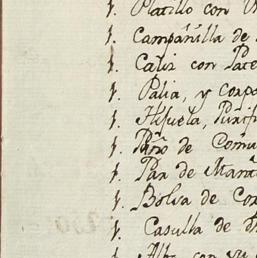 1. Platillo con
1. Campanilla de
1. Caliz con Pate
1. Palia, y corpo
1. Hijuela, Purifi
1. Paño de Comu
1. Par de Mant
1. Bolsa de Cor
1. Casulla de
1. Alba con su